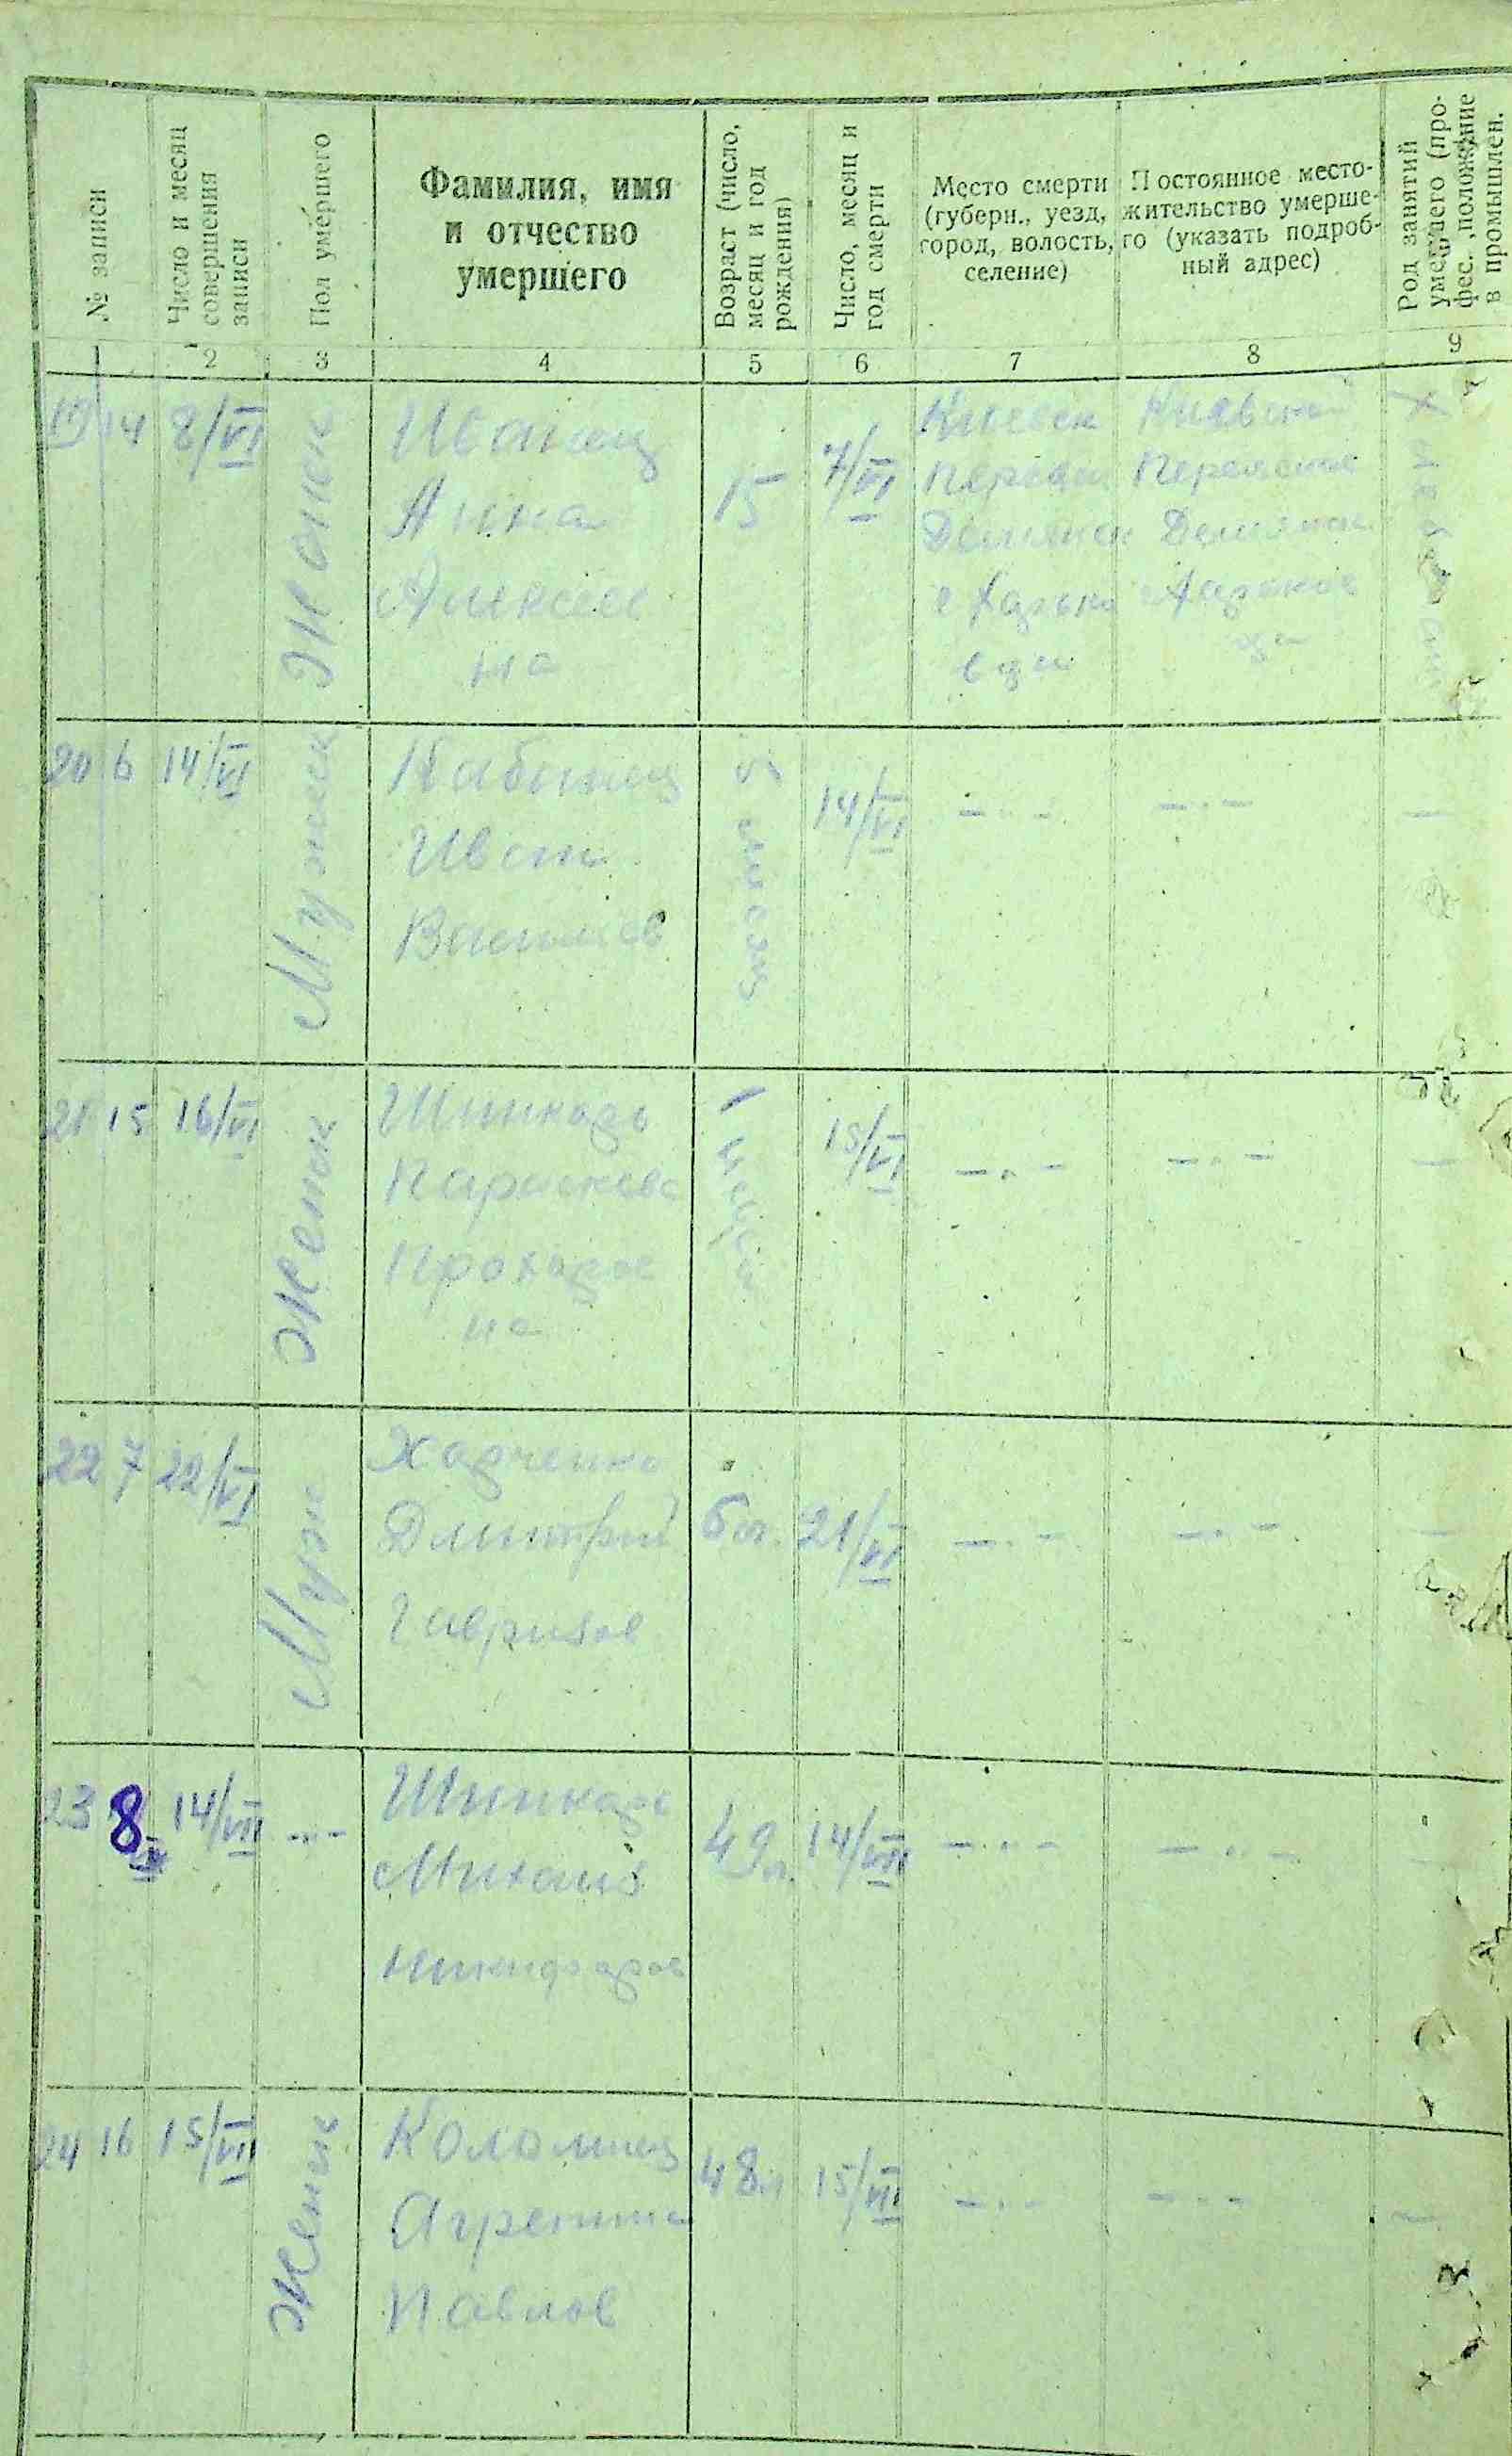 № записи
Число и месяц
совершения
записи
Пол умершего
Фамилия, имя
и отчество
умершего
Возраст (число,
месяц и год
рождения)
Число, месяц и
год смерти
Место смерти
(губерн., уезд,
город, волость,
селение)
Постоянное место-
жительство умерше-
го (указать подроб-
ный адрес)
Род занятий
умершего (про-
фес., положение
в промышлен.
2 3 4 5 6 7 8 9
19 14 8/VI
Женск
Иванец
Анна
Алексеев
на
15
7/VI
Киевск
Переясл
Демянск
с Харько
вцы
Киевской
Переяслав
Демянск
с Харьков
цы
20 6 14/VI
Мужск
Кабанец
Иван
Васильев
5 месяц
14/VI
—··— —·—
21 15 16/VI
Женск
Шинкарь
Параскева
Прохоров
на
1
15/VI
—·— —·—
22 7 22/VI
Муж
Харченко
Дмитрий
Гаврилов
6 л. 21/VI
—·— —·—
23 8 14/VII —··—
Шинкарь
Михаил
Никифоров
49 л. 14/VII
—··— —··—
24 16 15/VII
Женск
Коломиец
Агрепина
Павлов
48 л 15/VII
—·— —·—